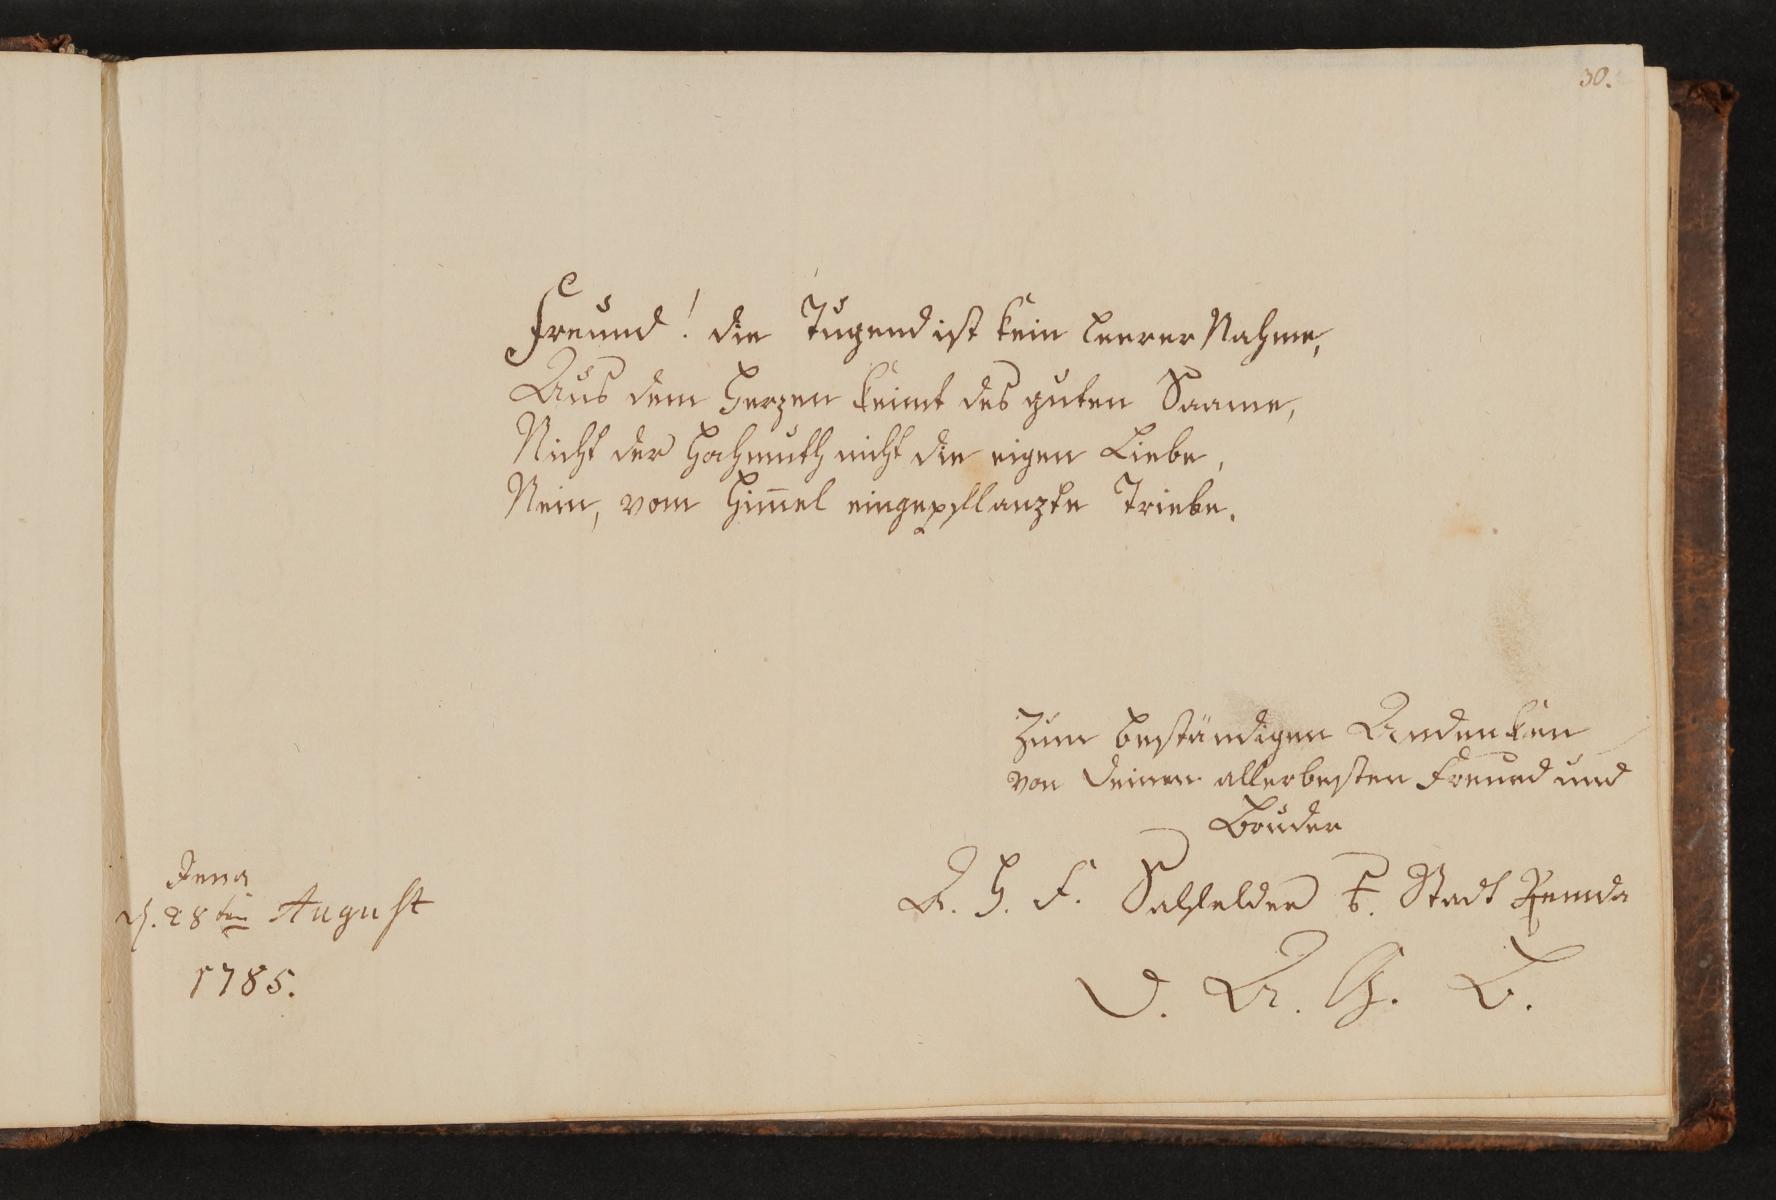 30.
Freund! die Tugend ist kein leerer Nahme,
Aus dem Herzen keimt des guten Saame,
Nicht der Hohmuth nicht die eigen Liebe,
Nein, vom Him̅el eingepfllanzte Triebe.
Zum beständigen Andenken
von deinen allerbesten Freund und
Bruder
A. H. F. Salfelder Stadt Remda
Jena
d. 28ten August
1785.